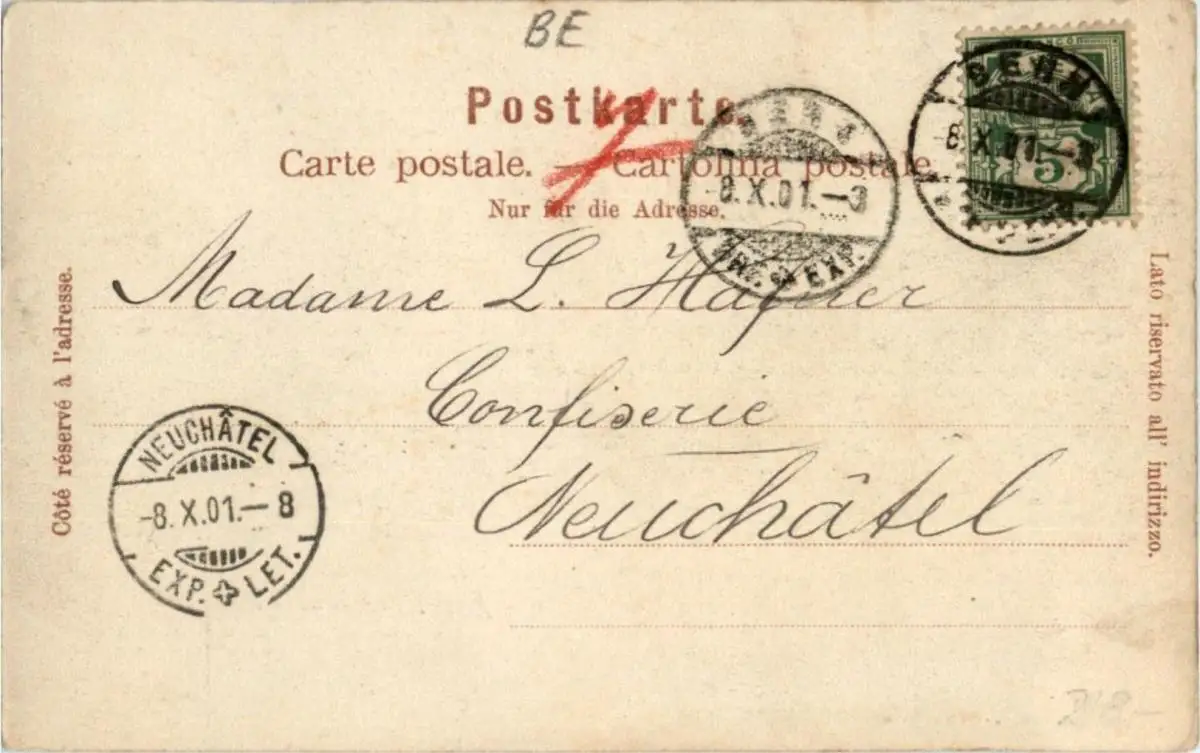 BE
Postkarte.
Carte postale. — Cartolina postale.
Nur für die Adresse.
FRANCO
5
BERN
-8.X.01.-3
BERN
-8.X.01.-3
BRF. EXP.
Côté réservé à l'adresse.
Lato riservato all' indirizzo.
Madame L. Hafner
Confiserie
Neuchâtel
NEUCHÂTEL
-8.X.01.-8
EXP. LET.